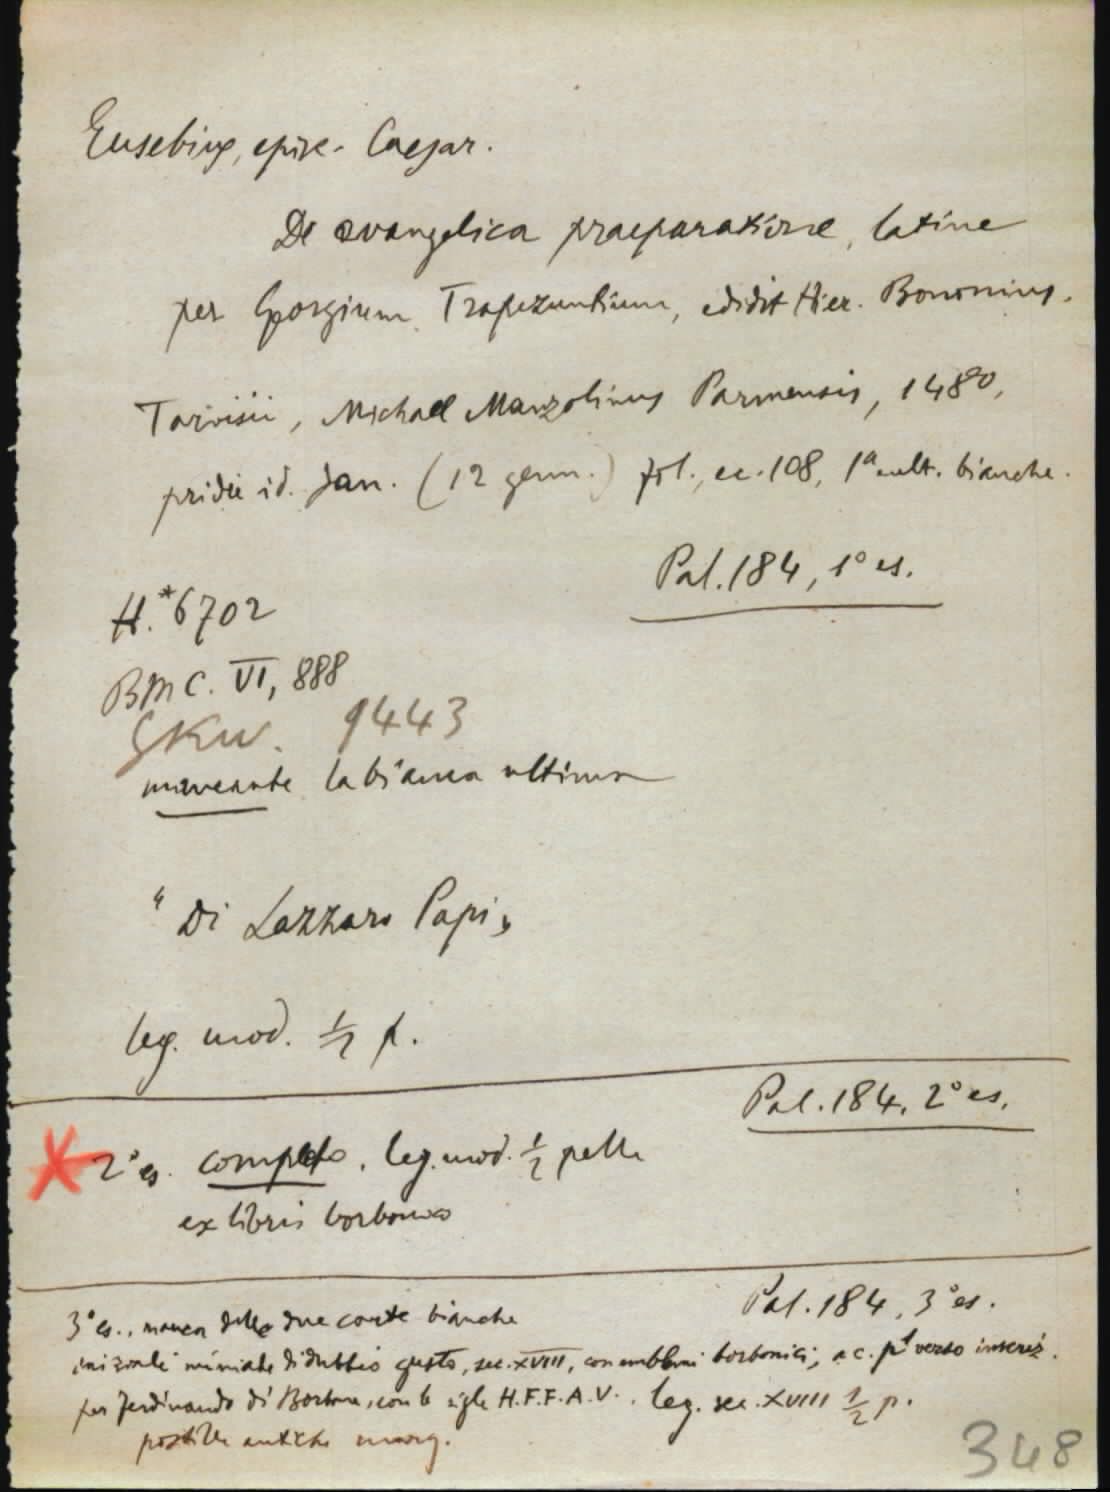 Eusebius, episc. Caesar.
De evangelica praeparatione, latine
per Georgium Trapezuntium, edidit Hier. Bononius.
Tarvisii, Michael Manzolinus Parmensis, 1480,
pridie id. Jan. (12 genn.) fol., cc. 108, 1a e ult. bianche.
Pal. 184, 1° es.
H. *6702
BMC. VI, 888
GKW. 9443
mancante la bianca ultima
"Di Lazzaro Papi"
leg. mod. 1/2 p.
Pal. 184, 2° es.
2° es. completo, leg. mod. 1/2 pelle
ex libris borbonico
Pal. 184, 3° es.
3° es., manca delle due carte bianche
iniziali miniate di dubbio gusto, sec. XVIII, con emblemi borbonici, a c. pa verso inscriz.
per Ferdinando di Borbone, con le sigle H.F.F.A.V., leg. sec. XVIII 1/2 p.
postille antiche marg.
348